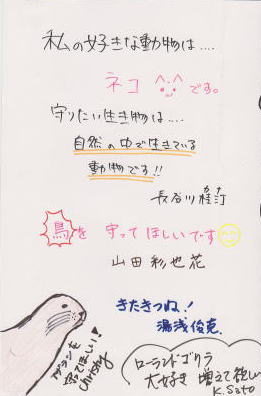 私の好きな動物は‥‥
ネコ^^です。
守りたい生き物は‥‥
自然の中で生きている
動物です!!
長谷川桂汀
鳥を 守ってほしいです
山田彩也花
きたきつね!
湯浅俊克
アザラシを
守ってほしい!
Christy
ローランドゴリラ
大好き 増えて欲しい
K.Sato